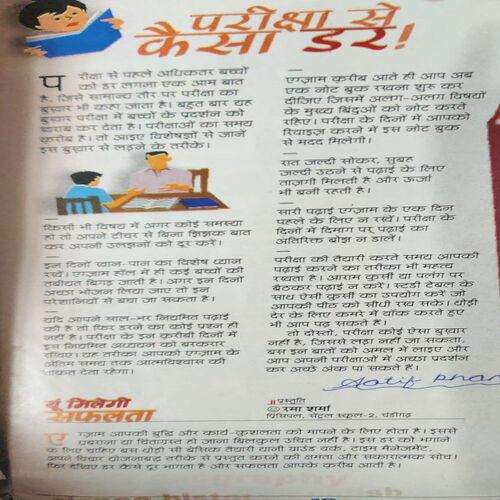 परीक्षा से
कैसा डर!
परीक्षा से पहले अधिकतर बच्चों
को डर लगना एक आम बात
है, जिसे सामान्य तौर पर परीक्षा का
बुखार भी कहा जाता है। बहुत बार यह
बुखार परीक्षा में बच्चों के प्रदर्शन को
खराब कर देता है। परीक्षाओं का समय
करीब है। तो आइए विशेषज्ञों से जानें
इस बुखार से लड़ने के तरीके।
किसी भी विषय में अगर कोई समस्या
हो तो अपने टीचर से बिना झिझक बात
कर अपनी उलझनों को दूर करें।
इन दिनों खान-पान का विशेष ध्यान
रखें। एग्ज़ाम हॉल में ही कई बच्चों की
तबीयत बिगड़ जाती है। अगर इन दिनों
अच्छा भोजन लिया जाए तो इन
परेशानियों से बचा जा सकता है।
यदि आपने साल-भर नियमित पढ़ाई
की है तो फिर डरने का कोई प्रश्न ही
नहीं है। परीक्षा के इन क़रीबी दिनों में
इस नियमित अध्ययन को बरकरार
रखिए। यह तरीका आपको एग्ज़ाम के
अंतिम समय तक आत्मविश्वास की
ताकत देता रहेगा।
एग्ज़ाम क़रीब आते ही आप अब
एक नोट बुक रखना शुरू कर
दीजिए जिसमें अलग-अलग विषयों
के मुख्य बिंदुओं को नोट करते
रहिए। परीक्षा के दिनों में आपको
रिवाइज़ करने में इस नोट बुक
से मदद मिलेगी।
रात जल्दी सोकर, सुबह
जल्दी उठने से पढ़ाई के लिए
ताज़गी मिलती है और ऊर्जा
भी बनी रहती है।
सारी पढ़ाई एग्ज़ाम के एक दिन
पहले के लिए न रखें। परीक्षा के
दिनों में दिमाग पर पढ़ाई का
अतिरिक्त बोझ न डालें।
परीक्षा की तैयारी करते समय आपकी
पढ़ाई करने का तरीका भी महत्व
रखता है। आराम कुर्सी या पलंग पर
बैठकर पढ़ाई न करें। स्टडी टेबल के
साथ ऐसी कुर्सी का उपयोग करें जो
आपकी पीठ को सीधी रख सके। थोड़ी
देर के लिए कमरे में वॉक करते हुए
भी आप पढ़ सकते हैं।
तो दोस्तो, परीक्षा कोई ऐसा बुखार
नहीं है, जिससे लड़ा नहीं जा सकता,
बस इन बातों को अमल में लाइए और
आप अपनी परीक्षाओं में अच्छा प्रदर्शन
कर अच्छे अंक पा सकते हैं।
प्रस्तुति
रमा शर्मा
प्रिंसिपल, सेंट्रल स्कूल-2, चंडीगढ़
यूं मिलेगी
सफलता
एग्ज़ाम आपकी बुद्धि और कार्य-कुशलता को मापने के लिए होता है। इससे
घबराना या चिंताग्रस्त हो जाना बिलकुल उचित नहीं है। इस डर को भगाने
के लिए चाहिए बस थोड़ी सी बेसिक तैयारी यानी ग्राउंड वर्क, टाइम मैनेजमेंट,
अपने विचार योजनाबद्ध तरीके से प्रस्तुत करने की क्षमता और सकारात्मक सोच।
फिर देखिए डर कैसे दूर भागता है और सफलता आपके क़रीब आती है।